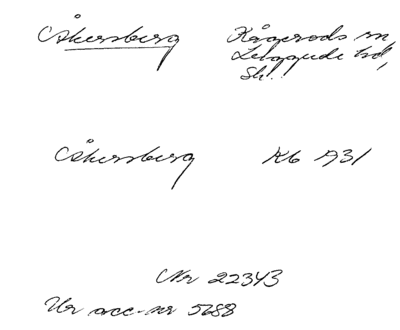 Åkersberg Kågeröds sn,
Luggude hd,
Sk.
Åkersberg Kb 1931
Nr 22343
Ur acc-nr 5688